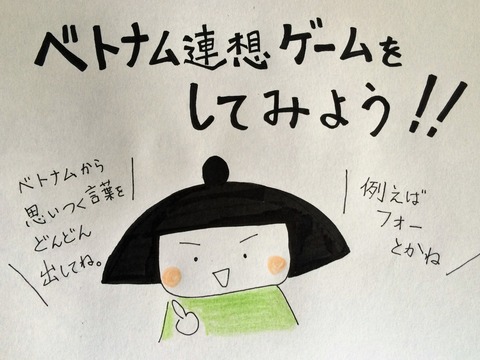 ベトナム連想ゲームを
してみよう!!
ベトナムから
思いつく言葉を
どんどん
出してね。
例えば
フォー
とかね